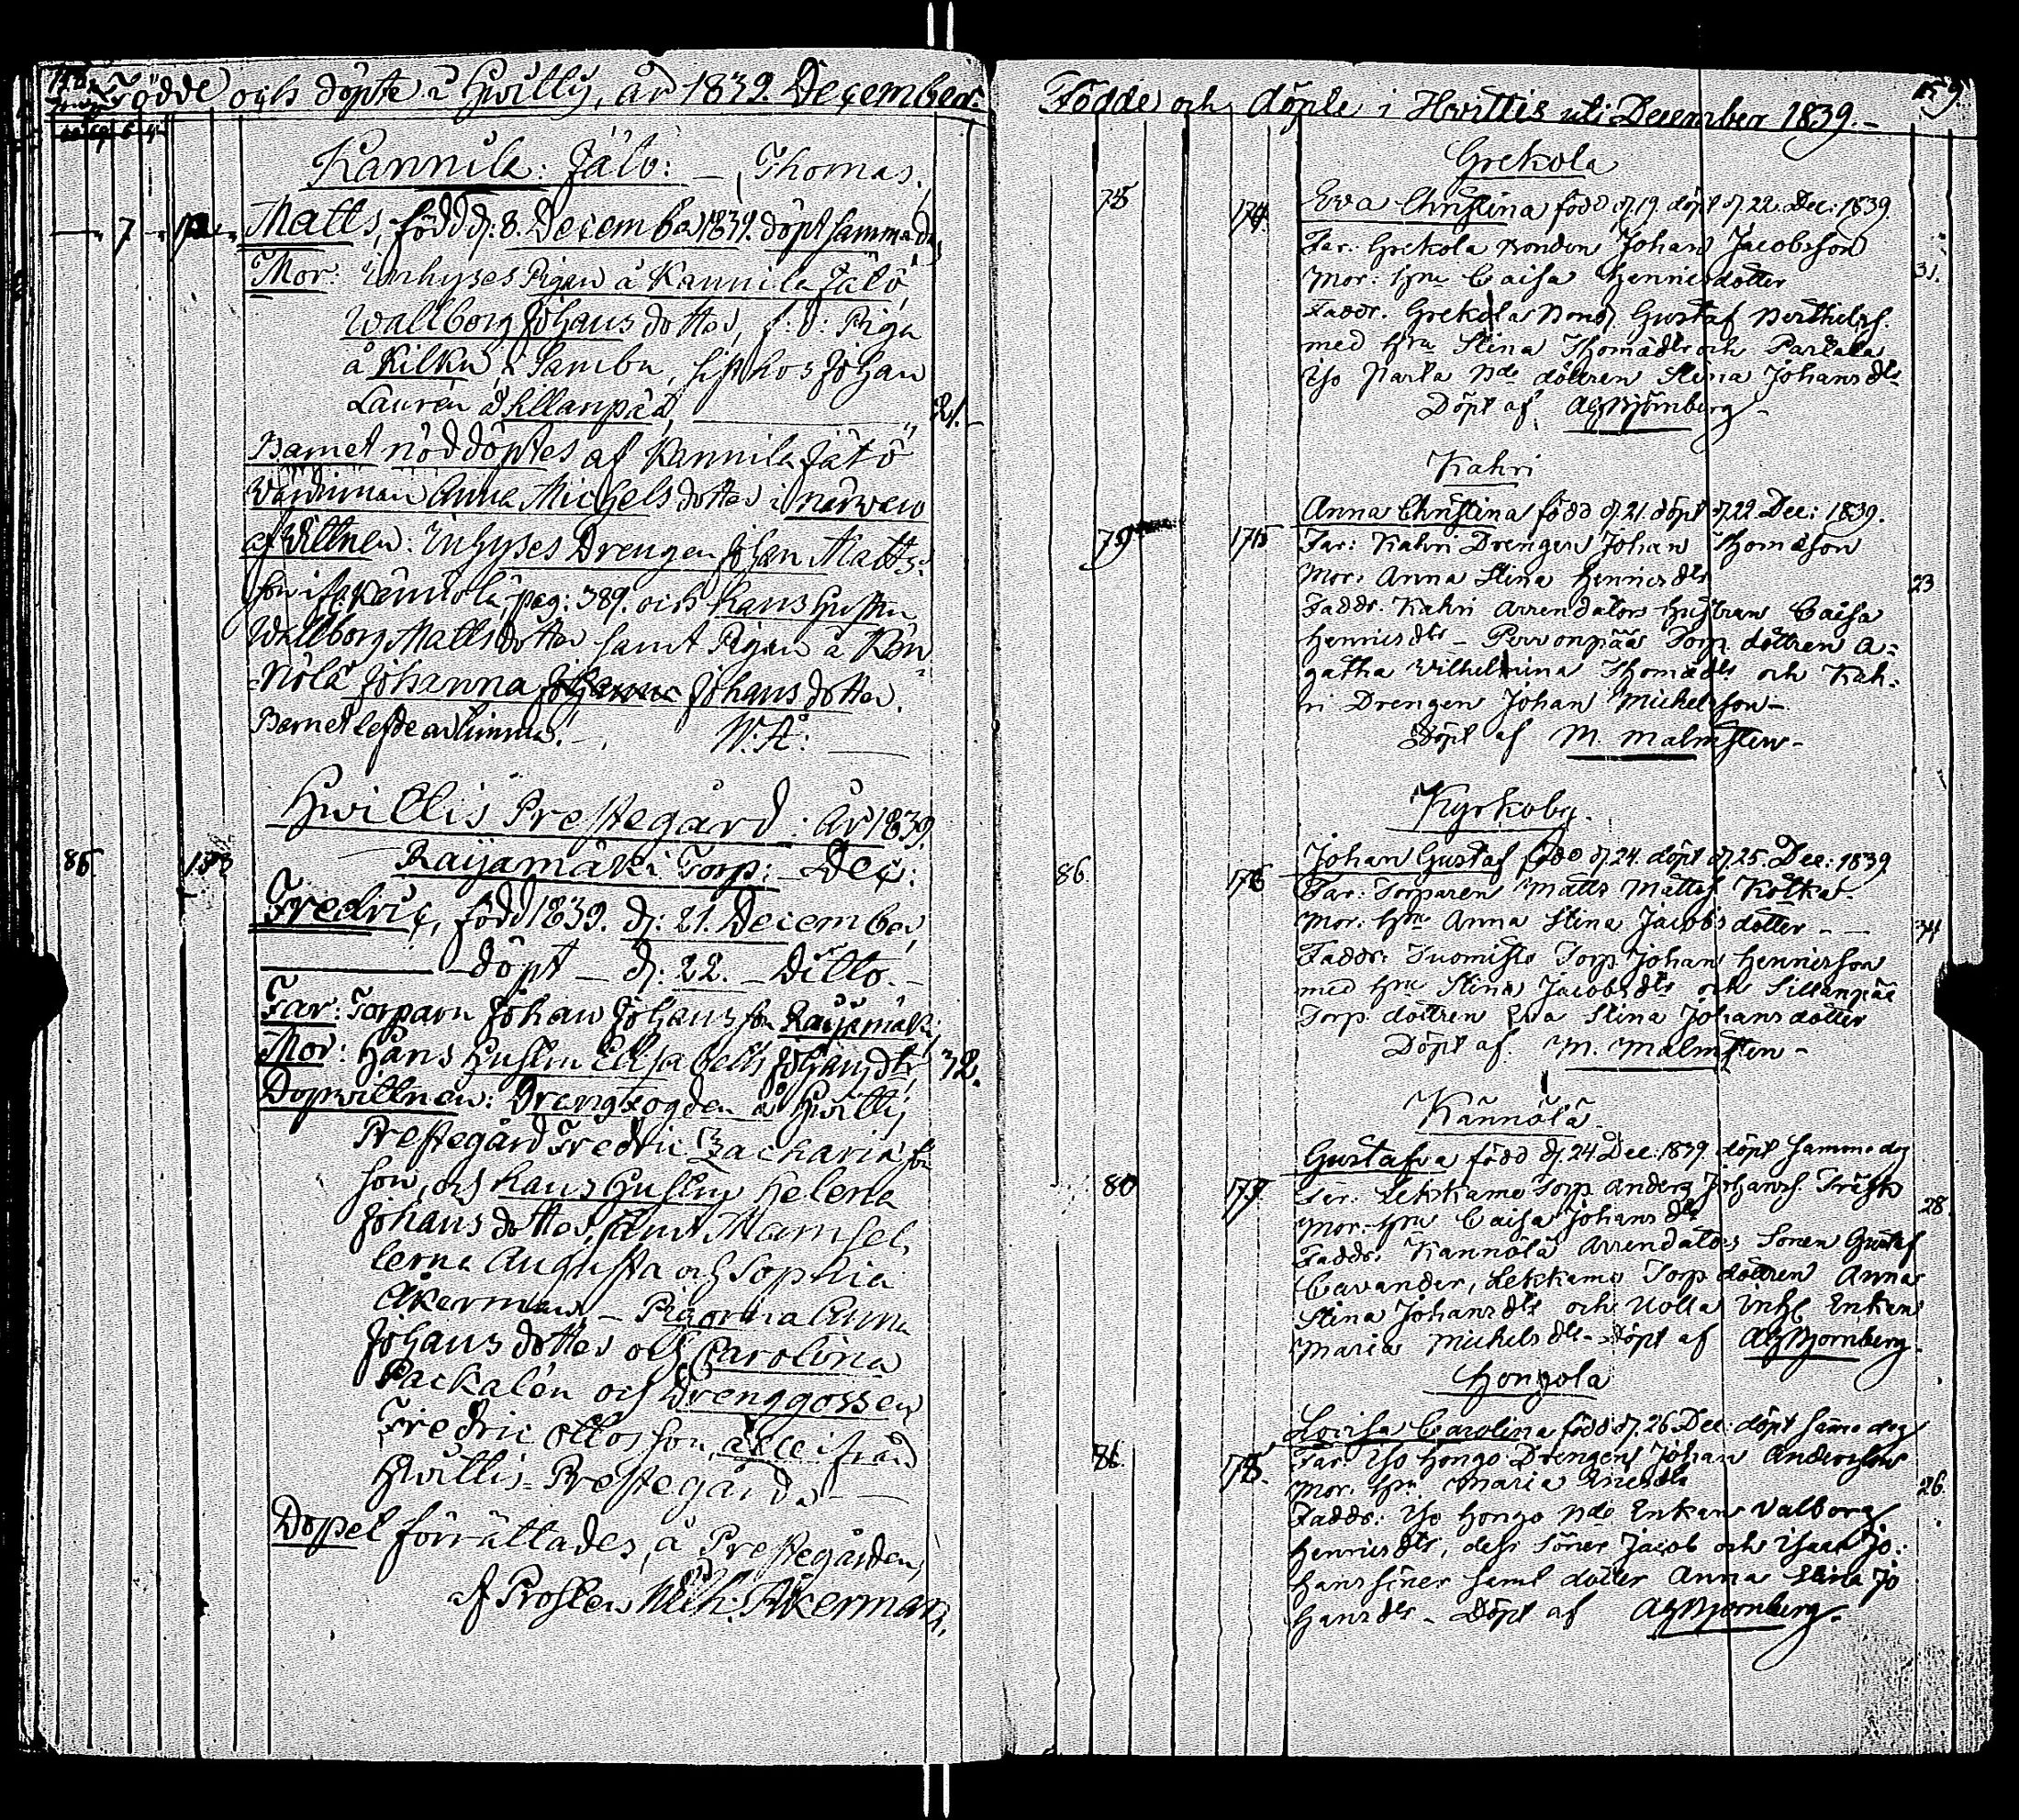 Födde och döpte i Hwitty, år 1839. December.
Kannila: Jätö: — Thomas.
7 Matts, född d: 8. December 1839. döpt samma dag
Mor: Inhyses Pigan å Kannila Jätö,
Wallborg Johans dotter, f: d: Piga
å Kilku i Sambu, sist hos Johan
Laurén å Sillanpää, 21.
Barnet nöddöptes af Kannila Jätö
Wärdinnan Anna Michels dotter i närwaro
af Wittnen: Inhyses Drengen Johan Matts-
son ifrån Kännölä, pag: 389. och hans Hustru
Wallborg Matts dotter samt Pigan å Kän
nölä Johanna Johans dotter.
Barnet lefde en timma. — W. Å:
Hwittis Prestegård: År 1839.
Raijamäki Torp: — Dec:
86
Fredric, född 1839. d: 21. December,
döpt — d: 22. — Ditto. —
Far: Torparn Johan Johansson Raijamäki,
Mor: Hans Hustru Elisabeth Johansdtr 32.
Dopwittnen: Drengfogden å Hwittis
Prestegård Fredric Zacharias
son, och hans Hustru Helena
Johans dotter, samt Mamsel-
lerna Augusta och Sophia
Åkerman, — Pigorna Anna
Johans dotter och Carolina
Packalén och Drenggossen
Fredric Ottosson, alle ifrån
Hwittis Prestegård. —
Dopet förrättades å Prestegården,
af Prosten Wilh: Åkerman.
Födde och döpte i Hvittis uti December 1839. — 159.
Grekola
75 174. Eva Christina född d. 19. döpt d. 22. Dec: 1839
Far: Grekola Bonden Johan Jacobsson
Mor: Hru Caisa Henricsdotter 31.
Faddr. Grekola Bond. Gustaf Berthelss.
med hru Stina Thomasdtr och Partala
Iso Parta Bde döttren Stina Johansdtr
Döpt af Björnberg —
Kahri
79 175 Anna Christina född d. 21 döpt d. 22 Dec: 1839.
Far: Kahri Drengen Johan Thomasson
Mor: Anna Stina Henricsdtr 23
Faddr. Kahri Arrendators hustrun Caisa
Henricsdtr — Porvonpää Torp. döttren A-
gatha Wilhelmina Thomasdtr och Kah-
ri Drengen Johan Michelsson —
Döpt af M. Malmsten —
Kyrkoby.
86. 176 Johan Gustaf född d. 24. döpt d. 25. Dec: 1839.
Far: Torparen Matts Mattss. Kotka —
Mor: hru Anna Stina Jacobsdotter — — 34
Faddr: Tuomisto Torp. Johan Henricsson
med hru Stina Jacobsdtr och Sillanpää
Torp. döttren Eva Stina Johansdotter
Döpt af. M. Malmsten —
Kännölä.
80 177. Gustafva född d. 24 Dec: 1839 döpt samma dag
Far: Lekkamo Torp. Anders Johanss. Träsk
Mor: hru Caisa Johansdtr 28.
Faddr. Kännölä Arrendators Sonen Gustaf
Cavander, Lekkamo Torp. döttren Anna
Stina Johansdtr och Nolla Inh. Enkan
Maria Michelsdtr — Döpt af Björnberg.
Hongola
86. 178. Lovisa Carolina född d. 26. Dec: döpt samma dag
Far: Iso Hongo Drengen Johan Andersson
Mor. hru Maria 26.
Faddr: Iso Hongo Bde Enkan Valborg
Henricsdtr, dess söner Jacob och Isaac Jo-
hanssöner samt dotter Anna Stina Jo
hansdtr — Döpt af Björnberg.